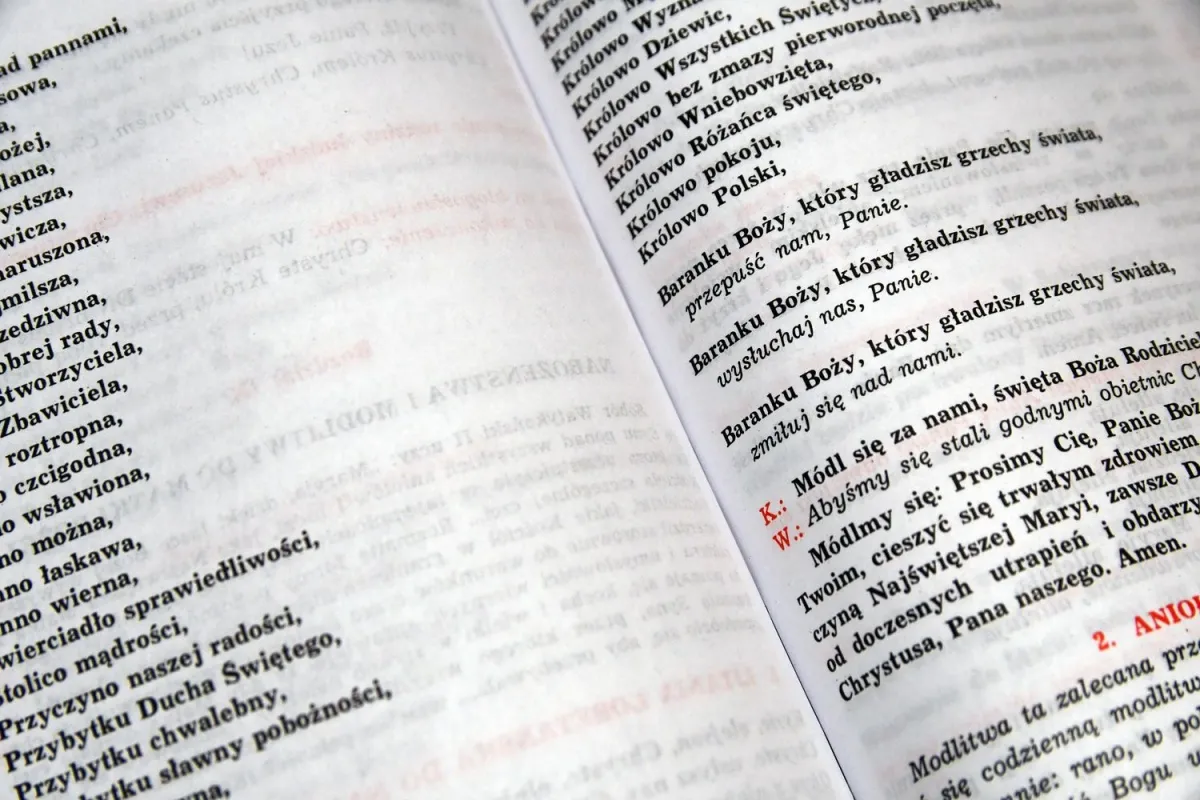 ad pannami,
sowa,
a,
ożej,
lana,
ystsza,
wicza,
naruszona,
milsza,
zedziwna,
obrej rady,
Stworzyciela,
Zbawiciela,
roztropna,
o czcigodna,
no wsławiona,
no można,
nno łaskawa,
nno wierna,
wierciadło sprawiedliwości,
tolico mądrości,
Przyczyno naszej radości,
Przybytku Ducha Świętego,
Przybytku chwalebny,
bytku sławny pobożności,
Królowo
Królowo Wyzna
Królowo Dziewic,
Królowo Wszystkich Świętyc
Królowo bez zmazy pierworodnej poczęta,
Królowo Wniebowzięta,
Królowo Różańca świętego,
Królowo pokoju,
Królowo Polski,
Baranku Boży, który gładzisz grzechy świata,
przepuść nam, Panie.
Baranku Boży, który gładzisz grzechy świata,
wysłuchaj nas, Panie.
Baranku Boży, który gładzisz grzechy świata,
zmiłuj się nad nami.
K.: Módl się za nami, święta Boża Rodziciel
W.: Abyśmy się stali godnymi obietnic Ch
Módlmy się: Prosimy Cię, Panie Boż
Twoim, cieszyć się trwałym zdrowiem
czyną Najświętszej Maryi, zawsze D
od doczesnych utrapień i obdarzy
Chrystusa, Pana naszego. Amen.
2. ANIO
Modlitwa ta zalecana prze
się codzienną modlitw
nie: rano, w po
Bogu w